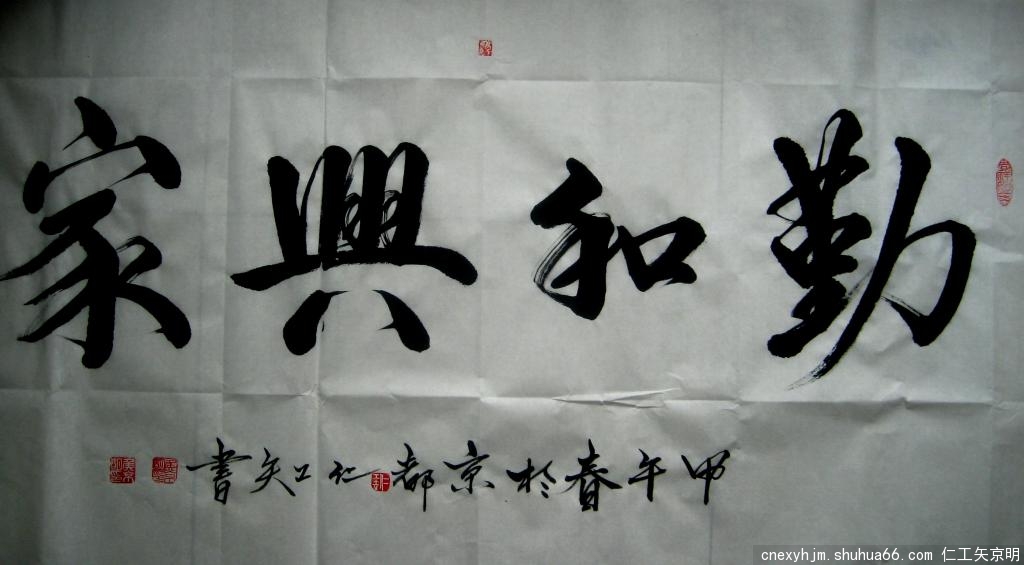 勤和興家
甲午春於京都仁工矢書
cnexyhjm.shuhua66.com 仁工矢京明